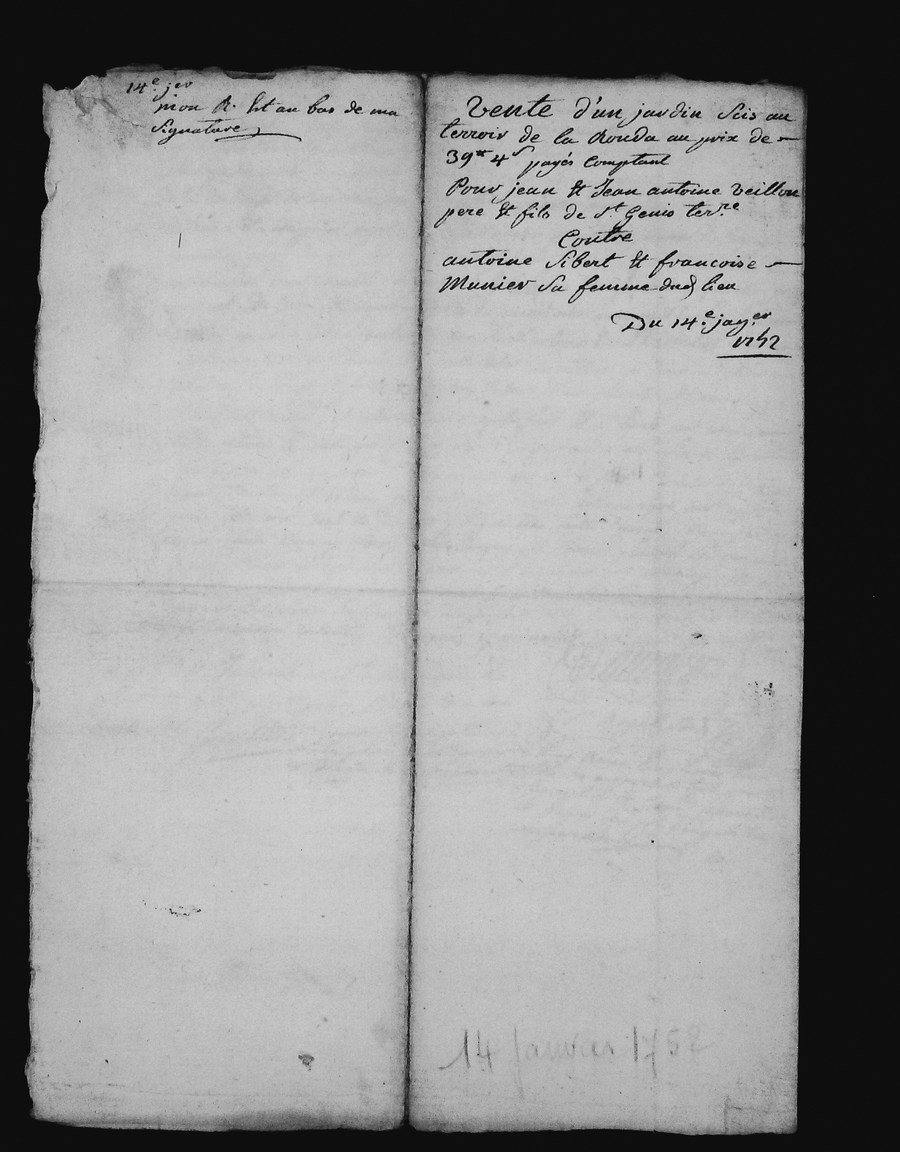 14e. jer
mon R. Est au bas de ma
Signature
Vente d'un jardin Scis au
terroir de la Ronda au prix de
39tt 4s payés Comptant
Pour jean Et Jean antoine Veillon
pere Et fils de St. Genis ter.re
Contre
antoine Sibert Et francoise
Munier Sa femme dud lieu
Du 14e. jan.er
1752
14 Janvier 1752